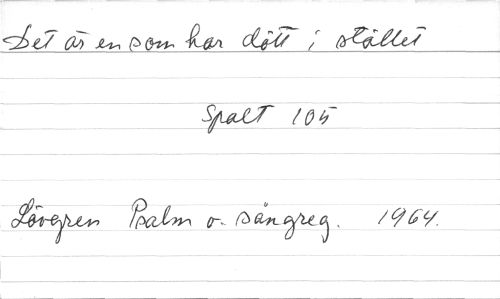 Det är en som har dött i stället
Spalt 105
Lövgren Psalm o. sångreg. 1964.